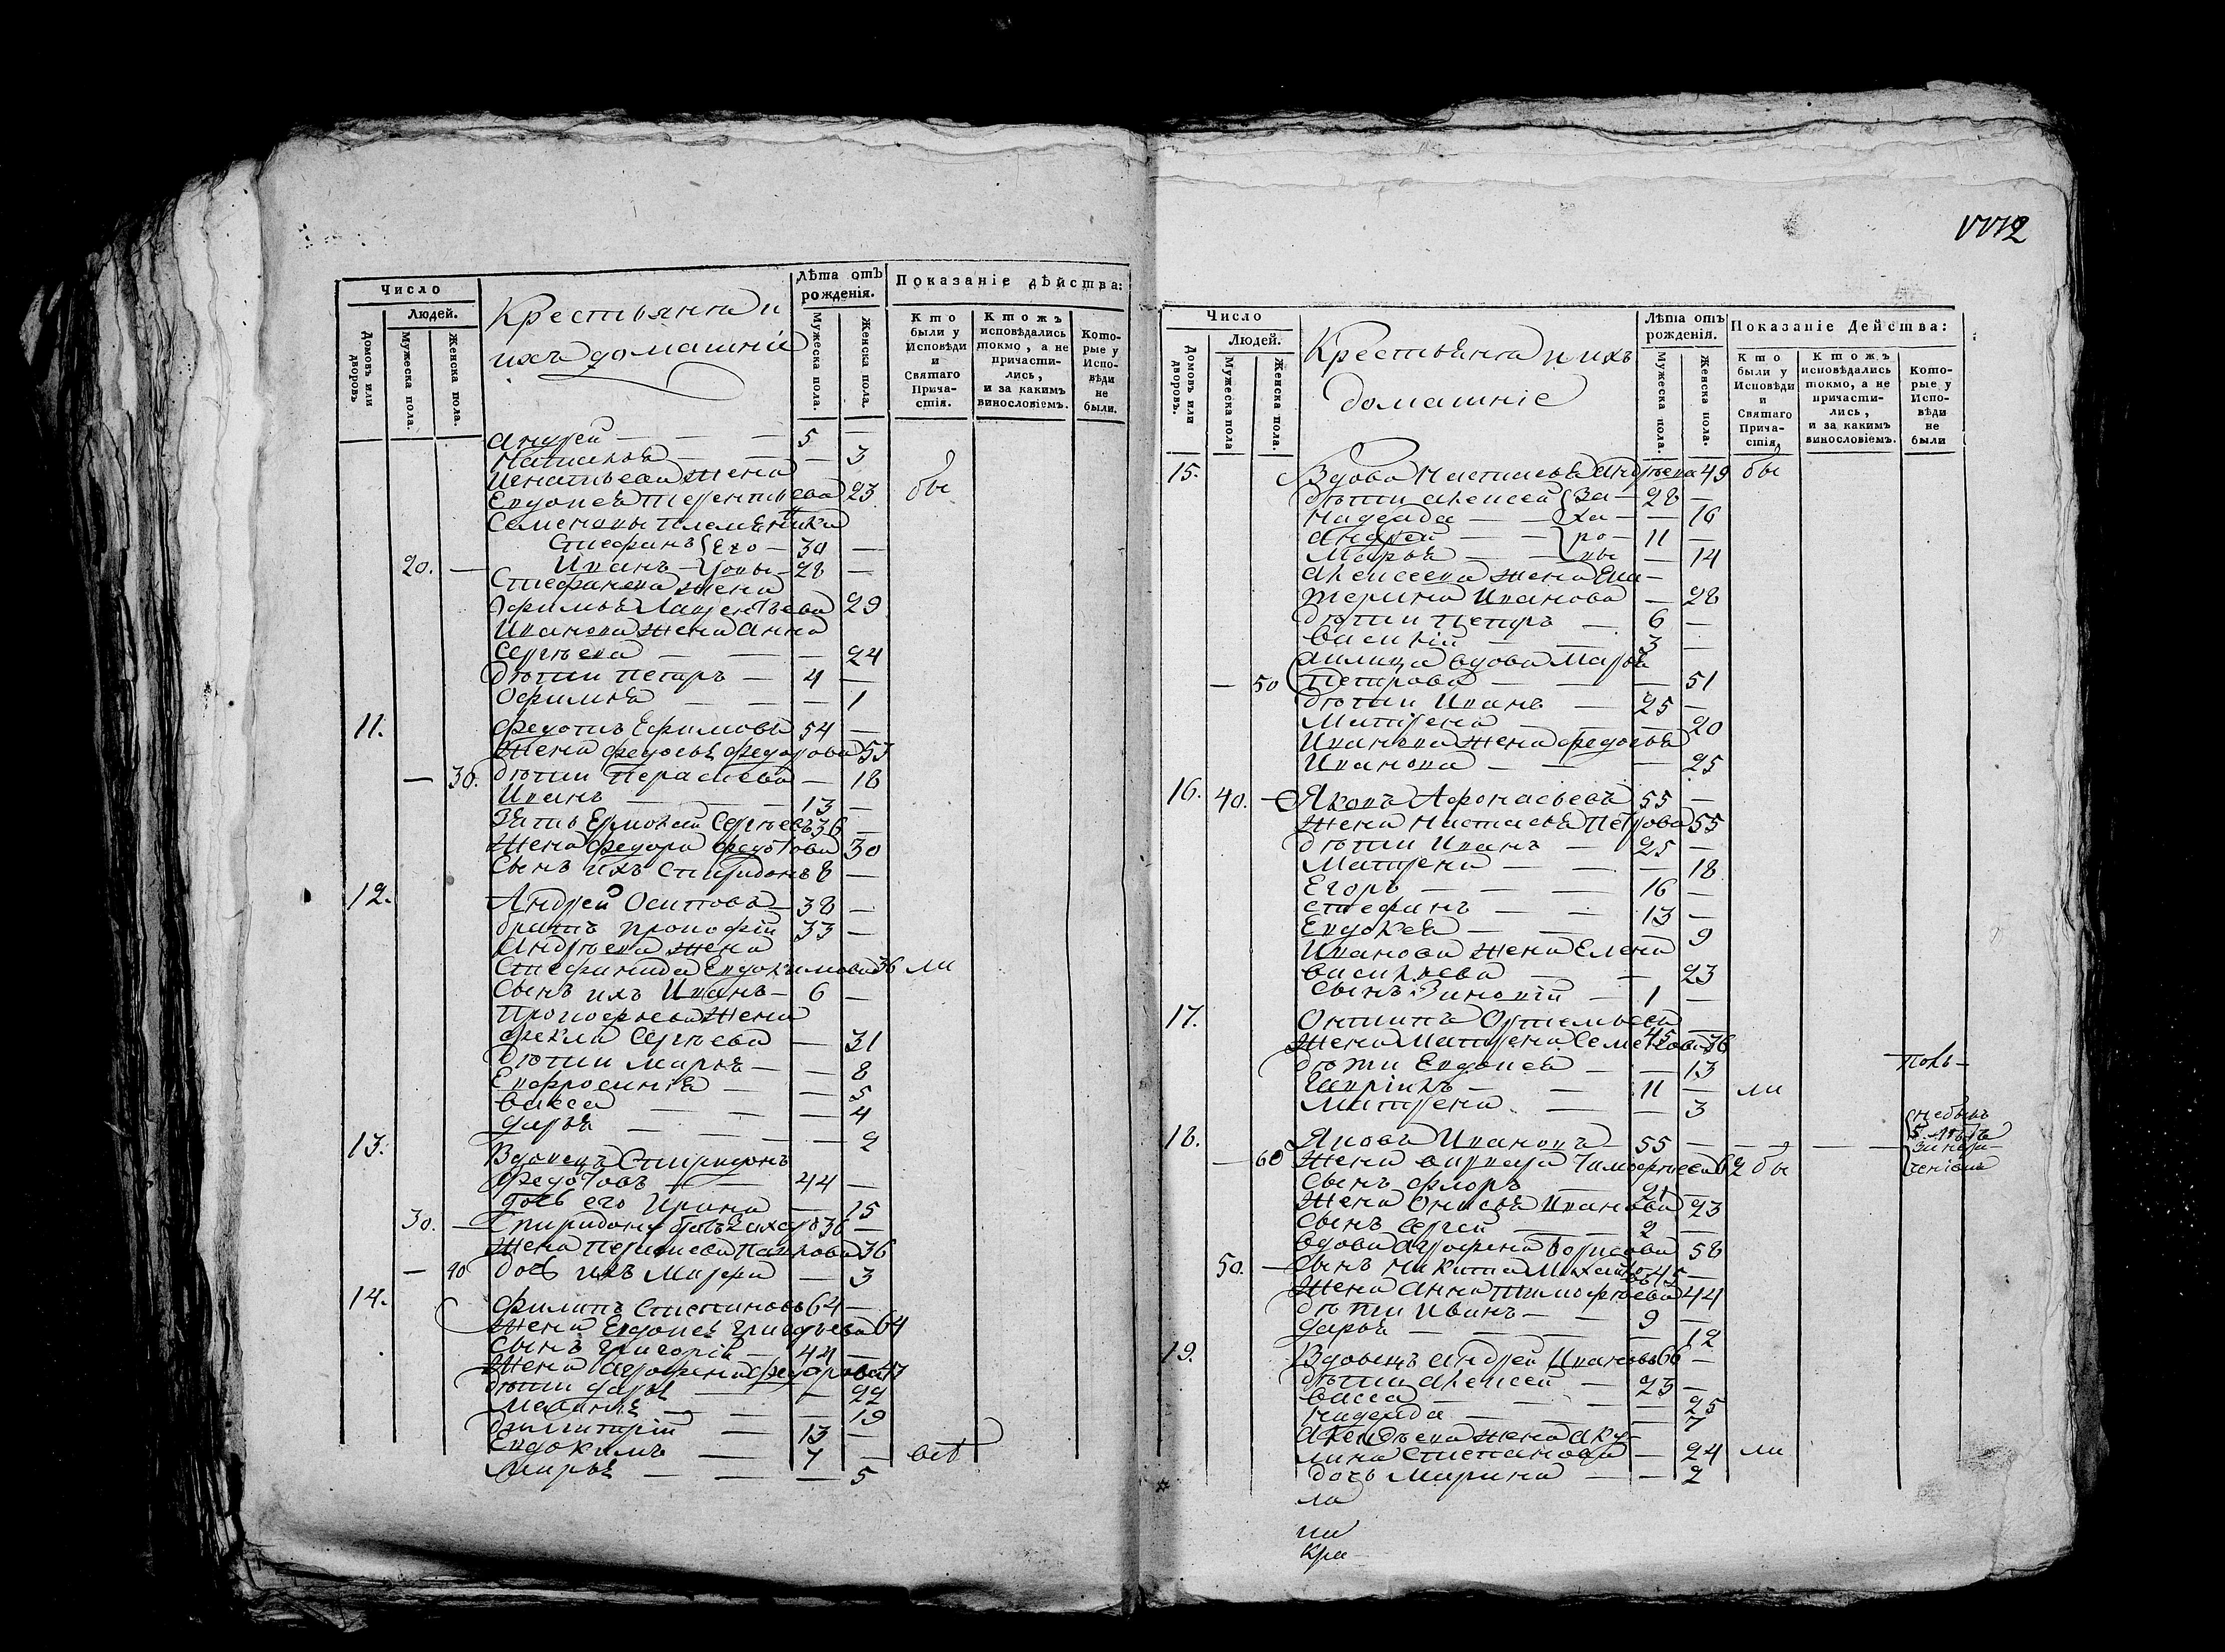 Число
Людей.
Домовъ или дворовъ.
Мужеска пола.
Женска пола.
Крестьянта и
ихъ домашніе
Лѣта отъ рожденія.
Мужеска пола.
Женска пола.
Показаніе дѣйства:
Кто были у Исповѣди и Святаго Прича-стія.
Ктожъ исповѣдались токмо, а не причасти-лись, и за какимъ винословіемъ.
Кото-рые у Испо-вѣди не были.
Андрей — — — 5 —
Наталья — — — 3
Игнатьева жена
Евдокея Терентьева 23 бы
Семеновы племянники
Стефанъ Его — 30 —
20. — Иванъ — 28 —
Стефанова жена
Офимья Лаврентьева 29
Иванова жена Анна
Сергѣева — — — 24
Дѣти Петръ — 4 —
Офимья — — — 1
11. Федотъ Ефимовъ 54 —
Жена Федосья Федорова 53
— 30. Дѣти Парасковья — 18
Иванъ — — 13 —
Зять Ермолай Сергѣевъ 36 —
Жена Федора Федотова 30
Сынъ ихъ Спиридонъ 8 —
12. Андрей Осиповъ — 38 —
братъ Прокофій 33 —
Андрѣева жена
Стефанида Евдокимова 36 ли
Сынъ ихъ Иванъ — 6 —
Прокофьева жена
Фекла Сергѣева — 31
Дѣти Марья — — 8
Евфросинія — — 5
Васса — — — 4
Дарья — — — 2
13. Вдовецъ Спиридонъ
Федотовъ — — 44 —
дочь его Ирина — 15
30. — Спиридоновъ братъ Захаръ 36 —
Жена Парасковья Петрова 36
— 40 дочь ихъ Марфа — 3
14. Филипъ Степановъ 64 —
Жена Евдокея 64
Сынъ Григорій — 44 —
Жена Аграфена Федорова 47
Дѣти Дарья — — 22
Меланья — — 19
Димитрій — 13 —
Евдокимъ — 7 — всѣ
Марья — — — 5
1772
Число
Людей.
Домовъ или дворовъ.
Мужеска пола
Женска пола.
Крестьянта и ихъ
домашніе
Лѣта отъ рожденія.
Мужеска пола.
Женска пола.
Показаніе Действа:
Кто были у Исповѣди и Святаго Прича-стія,
Ктожъ исповѣдались токмо, а не причасти-лись, и за какимъ винословіемъ.
Кото-рые у Испо-вѣди не были
15. Вдова Настасья Андрѣева 49 бы
Дѣти Алексей За — 28 —
Надежда — — ха — — 16
Андрей — — ро — 11 —
Марья — — вы — 14
Алексеева жена Ека-
терина Иванова — 28
Дѣти Петръ — 6 —
Василій — — 3 —
вдова Марья
— 50 Петрова — — — 51
Дѣти Иванъ — 25 —
Матрена — — — 20
Иванова жена Федосья
Иванова — — — 25
16. 40. — Яковъ Афонасьевъ 55 —
Жена Настасья Петрова 55
Дѣти Иванъ — 25 —
Матрена — — — 18
Егоръ — — — 16 —
Стефанъ — — 13 —
Евдокея — — — 9
Иванова жена Елена
Васильева — — 23
Сынъ Зиновій — 1 —
17. Онтипъ Ортемьевъ 45 —
Жена Матрена Семенова 36
Дѣти Евдокея — — 13
Гаврилъ — — 11 — ли
Матрена — — 3
Толь-
18. Яковъ Ивановъ 55 — — —
не былъ
— 60 Жена Тимофѣева 62 бы
Сынъ Флоръ — 21 —
Жена Онисья Иванова 23
Сынъ Сергей — 2 —
Вдова Аграфена Борисова 58
50. — Сынъ Никита 45 —
Жена Анна Тимофѣева 44
Дѣти Иванъ — 9 —
Дарья — — — 12
19. Вдовецъ Андрей Ивановъ 66 —
Дѣти Алексей — 23 —
Васса — — — 25
Надежда — — 7
Алексѣева жена Аку-
лина Степанова — 24 ли
дочь Марина — — 2
ла
ни
кра